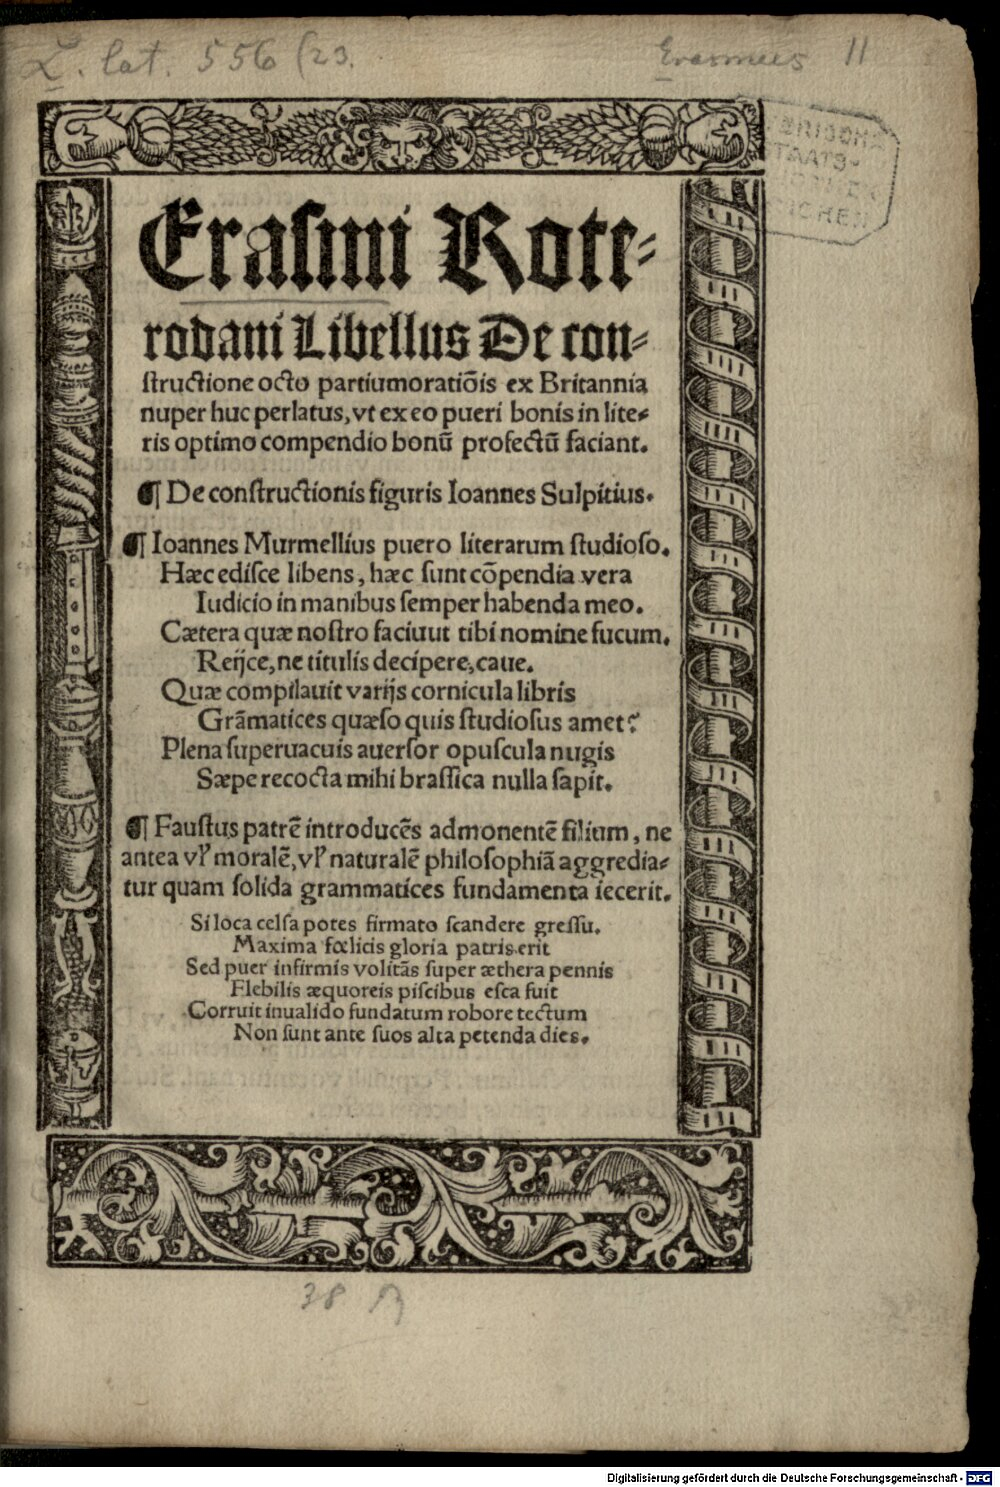 L. lat. 556 (23.
Erasmus 11
STAATS-
Erasmi Rote-
rodami Libellus De con-
structione octo partiumoratiōis ex Britannia
nuper huc perlatus, vt ex eo pueri bonis in lite-
ris optimo compendio bonū profectū faciant.
¶ De constructionis figuris Ioannes Sulpitius.
¶ Ioannes Murmellius puero literarum studioso.
Hæc edisce libens, hæc sunt cōpendia vera
Iudicio in manibus semper habenda meo.
Cætera quæ nostro faciuut tibi nomine fucum.
Reijce, ne titulis decipere, caue.
Quæ compilauit varijs cornicula libris
Grāmatices quæso quis studiosus amet?
Plena superuacuis auersor opuscula nugis
Sæpe recocta mihi brassica nulla sapit.
¶ Faustus patrē introducēs admonentē filium, ne
antea vl' moralē, vl' naturalē philosophiā aggredia-
tur quam solida grammatices fundamenta iecerit.
Si loca celsa potes firmato scandere gressu.
Maxima fœlicis gloria patris erit
Sed puer infirmis volitās super æthera pennis
Flebilis æquoreis piscibus esca fuit
Corruit inualido fundatum robore tectum
Non sunt ante suos alta petenda dies.
38
Digitalisierung gefördert durch die Deutsche Forschungsgemeinschaft - DFG